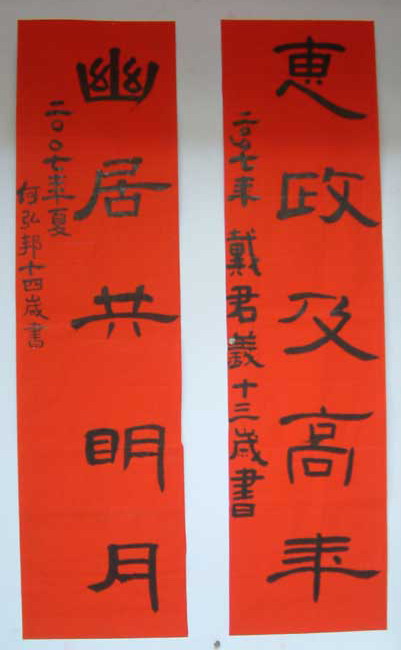 惠政及高年
二〇〇七年 戴君義十三歲書
幽居共明月
二〇〇七年夏
何弘邦十四歲書